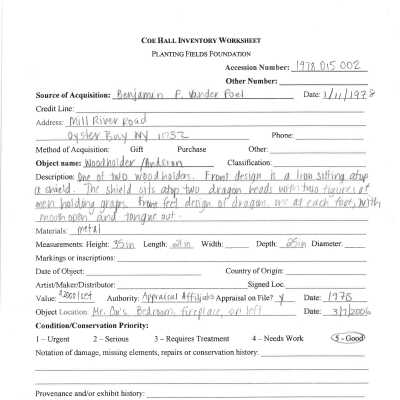 COE HALL INVENTORY WORKSHEET
PLANTING FIELDS FOUNDATION
Accession Number: 1978.015.002
Other Number:
Source of Acquisition: Benjamin F. Vander Poel Date: 1/11/1978
Credit Line:
Address: Mill River Road
Oyster Bay NY 11732 Phone:
Method of Acquisition: Gift Purchase Other:
Object name: Woodholder/Andiron Classification:
Description: One of two woodholders. Front design is a lion sitting atop
a shield. The shield sits atop two dragon heads with two figures of
men holding grapes. Front feet design of dragon, one at each foot, with
mouth open and tongue out.
Materials: metal
Measurements: Height: 35in Length: in Width: Depth: 25in Diameter:
Markings or inscriptions:
Date of Object: Country of Origin:
Artist/Maker/Distributor: Signed Loc.
Value: /set Authority: Appraisal Affiliates Appraisal on File? y Date: 1978
Object Location: Mr. Coe's Bedroom, fireplace, on left Date: 3/7/2006
Condition/Conservation Priority:
1 – Urgent 2 – Serious 3 – Requires Treatment 4 – Needs Work 5 - Good
Notation of damage, missing elements, repairs or conservation history:
Provenance and/or exhibit history: